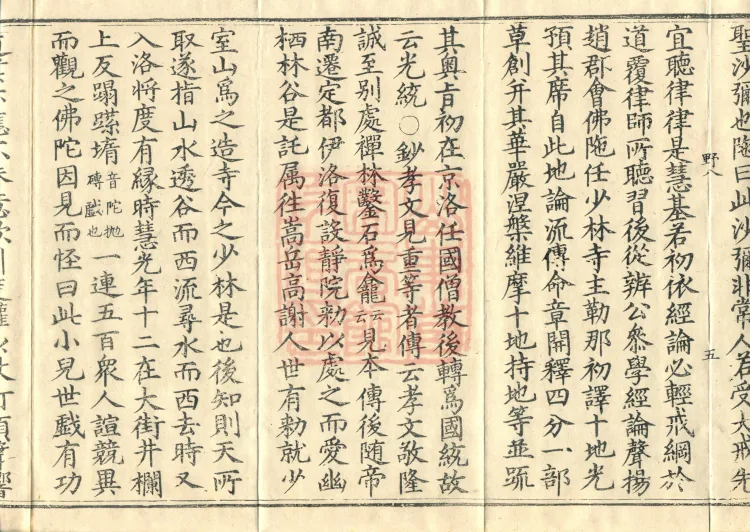 聖沙彌也陁曰此沙彌非常人若受大戒先
宜聽律律是慧基若初依經論必輕戒綱於
道覆律師所聽習後從辨公叅學經論聲揚
趙郡會佛陁任少林寺主勒那初譯十地光
預其席自此地論流傳命章開釋四分一部
草創并其華嚴涅槃維摩十地持地等並䟽
其奧旨初在京洛任國僧教後轉爲國統故
云光統○鈔孝文見重等者傳云孝文敬隆
誠至別處禪林鑿石爲龕云云見本傳後随帝
南遷定都伊洛復設靜院勑以處之而愛幽
栖林谷是託属往嵩岳高謝人世有勑就少
室山爲之造寺今之少林是也後知則天所
取遂指山水透谷而西流尋水而西去時又
入洛將度有緣時慧光年十二在大街井欄
上反蹋蹀㙐音陀抛磚戲也一連五百衆人諠競異
而觀之佛陀因見而怪曰此小兒世戲有功
野八
五